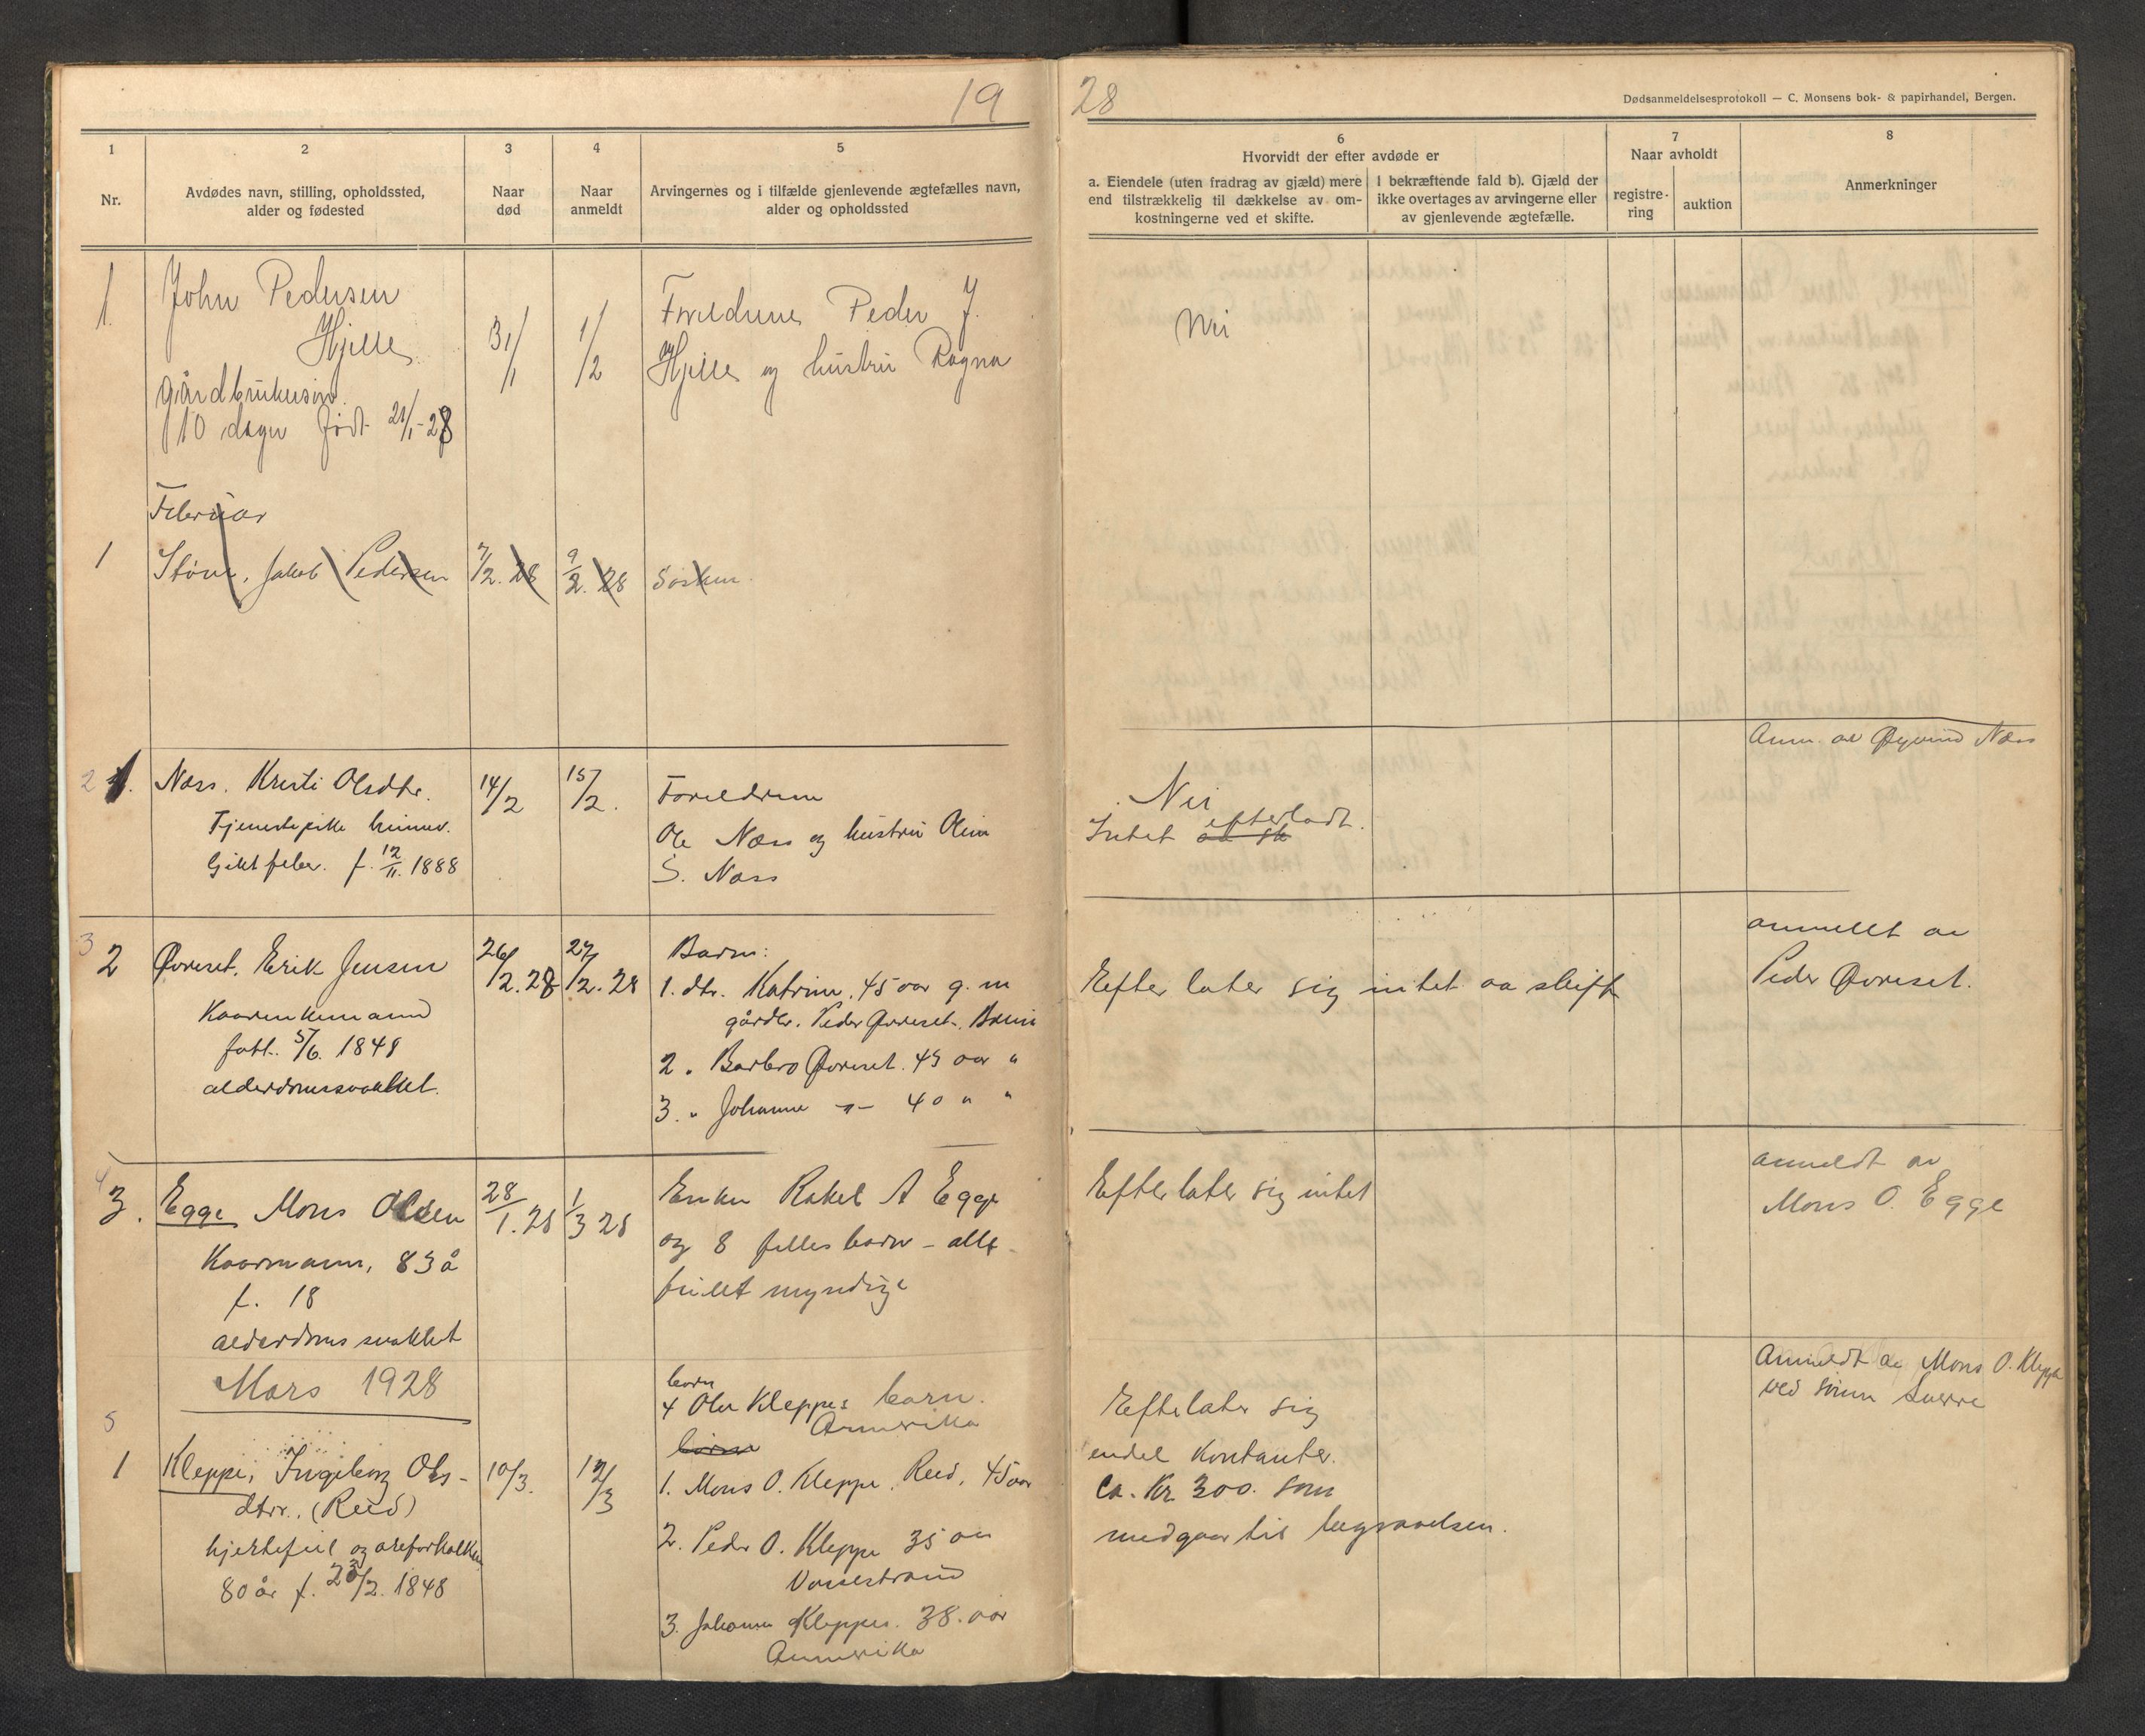 19
28
Dødsanmeldelsesprotokoll — C. Monsens bok- & papirhandel, Bergen.
1
2
3
4
5
6
7
8
Nr.
Avdødes navn, stilling, opholdssted,
alder og fødested
Naar
død
Naar
anmeldt
Arvingernes og i tilfælde gjenlevende ægtefælles navn,
alder og opholdssted
Hvorvidt der efter avdøde er
a. Eiendele (uten fradrag av gjæld) mere
end tilstrækkelig til dækkelse av om-
kostningerne ved et skifte.
I bekræftende fald b). Gjæld der
ikke overtages av arvingerne eller
av gjenlevende ægtefælle.
Naar avholdt
registre-
ring
auktion
Anmerkninger
1.
John Pedersen
Hjelle
gårdbrukersøn
10 dager født 21/1-28
31/1
1/2
Foreldrene Peder J.
Hjelle og hustru Ragna
Nei
Februar
1
Støve, Jakob Pedersen
7/2. 28
9/2. 28
Søsken
2 1.
Næss. Kristi Olsdtr.
Tjenestepike hiemme.
Giktfeber. f. 12/11. 1888
14/2
15/2.
Foreldrene
Ole Næss og hustru Oline
S. Næss
Nei
Intet efterladt.
Anm. av Øyvind Næss
3 2
Øvreset, Erik Jensen
født. 5/6. 1848
alderdomssvakket.
26/2.28
27/2.28
Barn:
1. dtr. Katrine, 45 aar g. m
gårdbr. Peder Øvreset.
2 " Barbro Øvreset. 43 aar "
3. " Johanne -"- 40 " "
Efterlater sig intet aa skifte
anmeldt av
Peder Øvreset.
4 3.
Egge Mons Olsen
Kaarmann, 83 å
f. 18
alderdomssvakket
28/1.28
1/3 28
Enken Rakel A Egge
og 8 felles barn - alle
fullt myndige
Efterlater sig intet
anmeldt av
Mons O. Egge
Mars 1928
5
1
Kleppe, Ingeborg Ols-
dtr. (Reed)
hjertefeil og areforkalkn
80 år f. 23/2. 1848
10/3.
12/3
barn
4 Olav Kleppes barn.
Amerika
1. Mons O. Kleppe, Reed, 45 aar
2. Peder O. Kleppe 35 aar
Vossestrand
3. Johanne Kleppe. 38. aar
Amerika
Efterlater sig
endel kontanter.
ca. kr 300. som
medgaar til begravelsen.
Anmeldt av Mons O. Kleppe
ved sønn Sverre